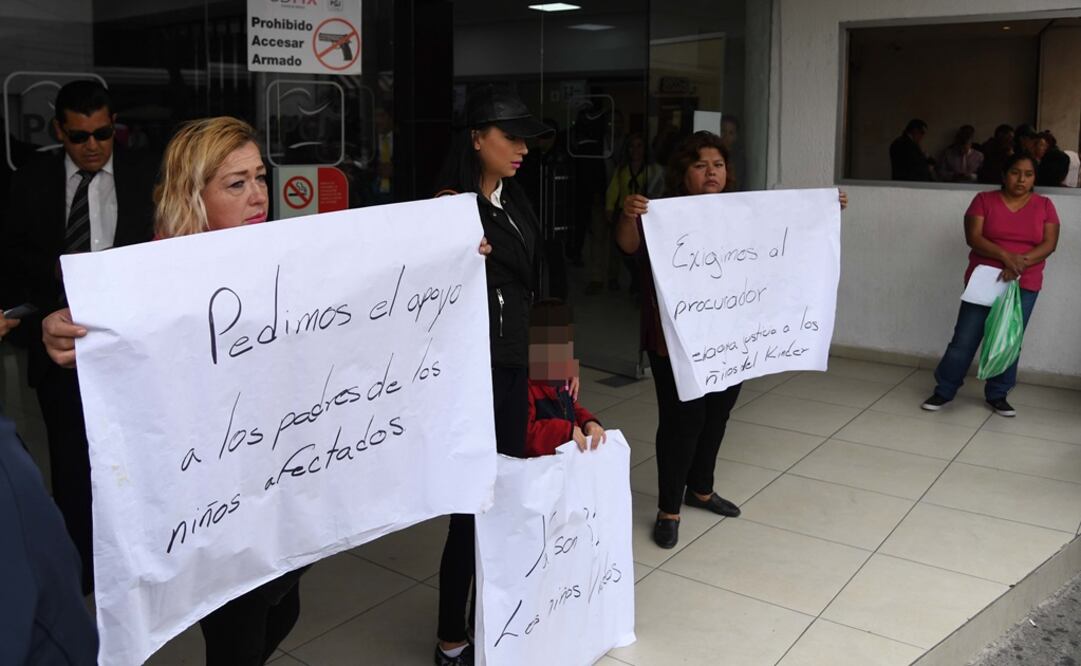 CDMX
PGJ
Prohibido
Accesar
Armado
Pedimos el apoyo
a los padres de los
niños afectados
Exigimos al
procurador
justicia a los
niños del Kinder
son
Los niños